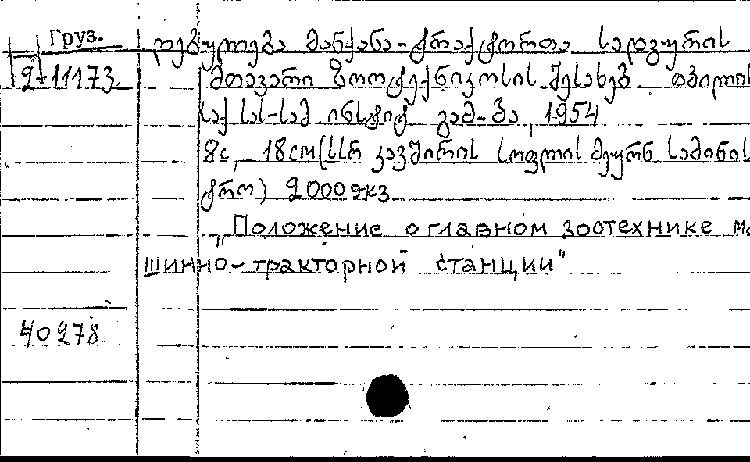 Груз. დებულება მანქანა-ტრაქტორთა სადგურის
2-11173 მთავარი ზოოტექნიკოსის შესახებ. თბილის
საქ სას-სამ ინსტიტ გამ-ბა, 1954
8с, 18см (სსრ კავშირის სოფლის მეურნ სამინის
ტრო) 2000 ეკз
„Положение о главном зоотехнике ма
шинно-тракторной станции"
40278